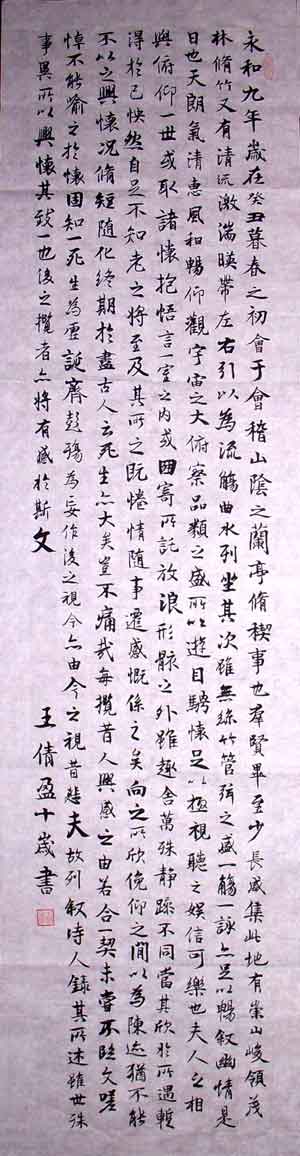 永和九年歲在癸丑暮春之初會于會稽山陰之蘭亭脩稧事也羣賢畢至少長咸集此地有崇山峻領茂
林脩竹又有清流激湍暎帶左右引以為流觴曲水列坐其次雖無絲竹管弦之盛一觴一詠亦足以暢叙幽情是
日也天朗氣清惠風和暢仰觀宇宙之大俯察品類之盛所以遊目騁懷足以極視聽之娛信可樂也夫人之相
與俯仰一世或取諸懷抱悟言一室之內或因寄所託放浪形骸之外雖趣舍萬殊靜躁不同當其欣於所遇蹔
得於己怏然自足不知老之將至及其所之既惓情隨事遷感慨係之矣向之所欣俛仰之間以為陳迹猶不能
不以之興懷況脩短隨化終期於盡古人云死生亦大矣豈不痛哉每攬昔人興感之由若合一契未嘗不臨文嗟
悼不能喻之於懷固知一死生為虛誕齊彭殤為妄作後之視今亦由今之視昔悲夫故列叙時人錄其所述雖世殊
事異所以興懷其致一也後之攬者亦將有感於斯文
王倩盈十歲書